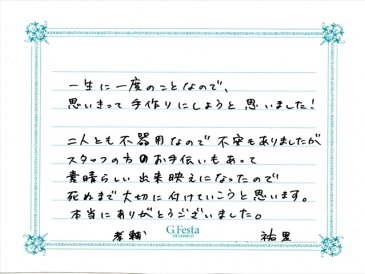 一生に一度のことなので、
思いきって手作りにしようと思いました!
二人とも不器用なので不安もありましたが
スタッフの方のお手伝いもあって
素晴らしい出来映えになったので
死ぬまで大切に付けていこうと思います。
本当にありがとうございました。
G.Festa
孝輔 祐里